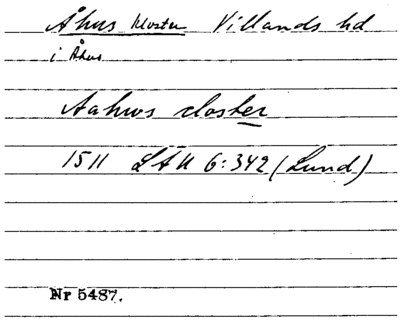 Åhus kloster Villands hd
i Åhus
Aahws closter
1511 LÄU 6:342 (Lund)
Nr 5487.